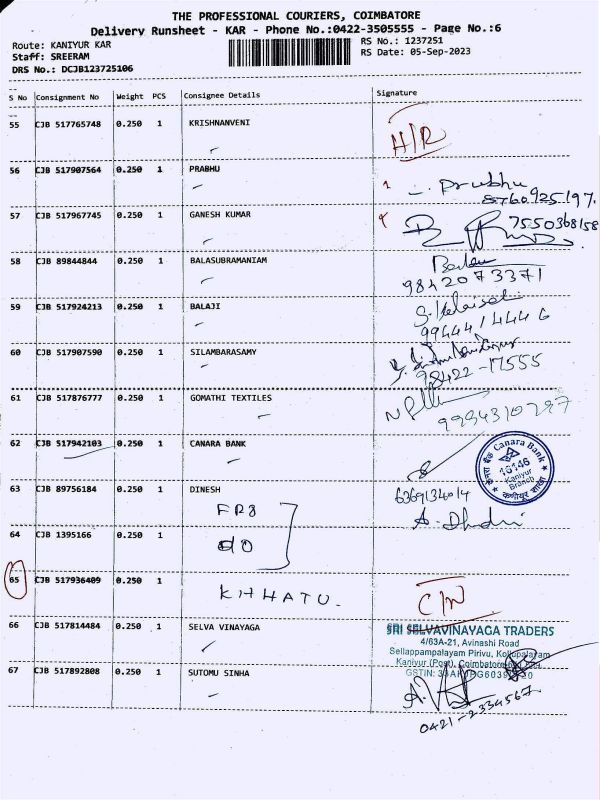 THE PROFESSIONAL COURIERS, COIMBATORE
Delivery Runsheet - KAR - Phone No.:0422-3505555 - Page No.:6
Route: KANIYUR KAR
RS No.: 1237251
Staff: SREERAM
RS Date: 05-Sep-2023
DRS No.: DCJB123725106
S No Consignment No Weight PCS Consignee Details Signature
55 CJB 517765748 0.250 1 KRISHNANVENI
H/R
56 CJB 517907564 0.250 1 PRABHU
Prubhu
8760925197.
57 CJB 517967745 0.250 1 GANESH KUMAR
7550368158
58 CJB 89844844 0.250 1 BALASUBRAMANIAM
9842073371
59 CJB 517924213 0.250 1 BALAJI
9944414446
60 CJB 517907590 0.250 1 SILAMBARASAMY
98422-17555
61 CJB 517876777 0.250 1 GOMATHI TEXTILES
9994310297
62 CJB 517942103 0.250 1 CANARA BANK
केनरा बैंक Canara Bank
16146
Kaniyur
Branch
कणीयूर शाखा
63 CJB 89756184 0.250 1 DINESH
6369134014
64 CJB 1395166 0.250 1
do
65 CJB 517936409 0.250 1
KHHATU.
C/N
66 CJB 517814484 0.250 1 SELVA VINAYAGA
SRI SELVAVINAYAGA TRADERS
4/63A-21, Avinashi Road
Sellappampalayam Pirivu, Kollupalayam
Kaniyur (Post), Coimbatore
GSTIN:
67 CJB 517892808 0.250 1 SUTOMU SINHA
0421-2334567